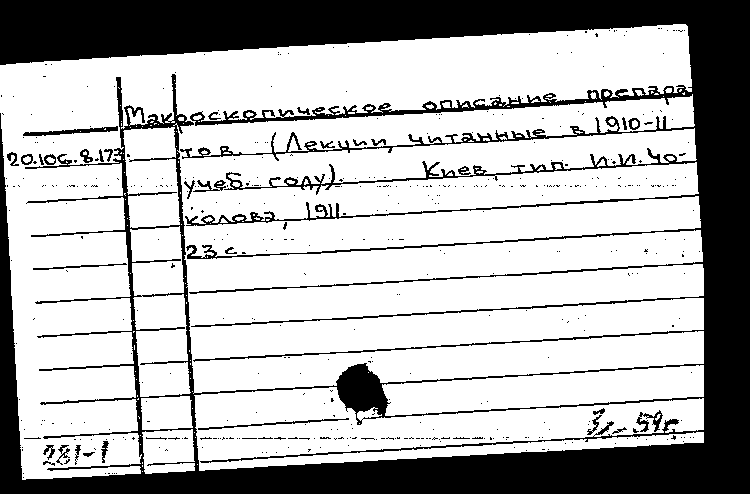 Макроскопическое описание препара
20.106.8.173. тов. (Лекции, читанные в 1910-11
учеб. году). Киев, тип. И.И. Чо-
колова, 1911.
23 с.
281-1